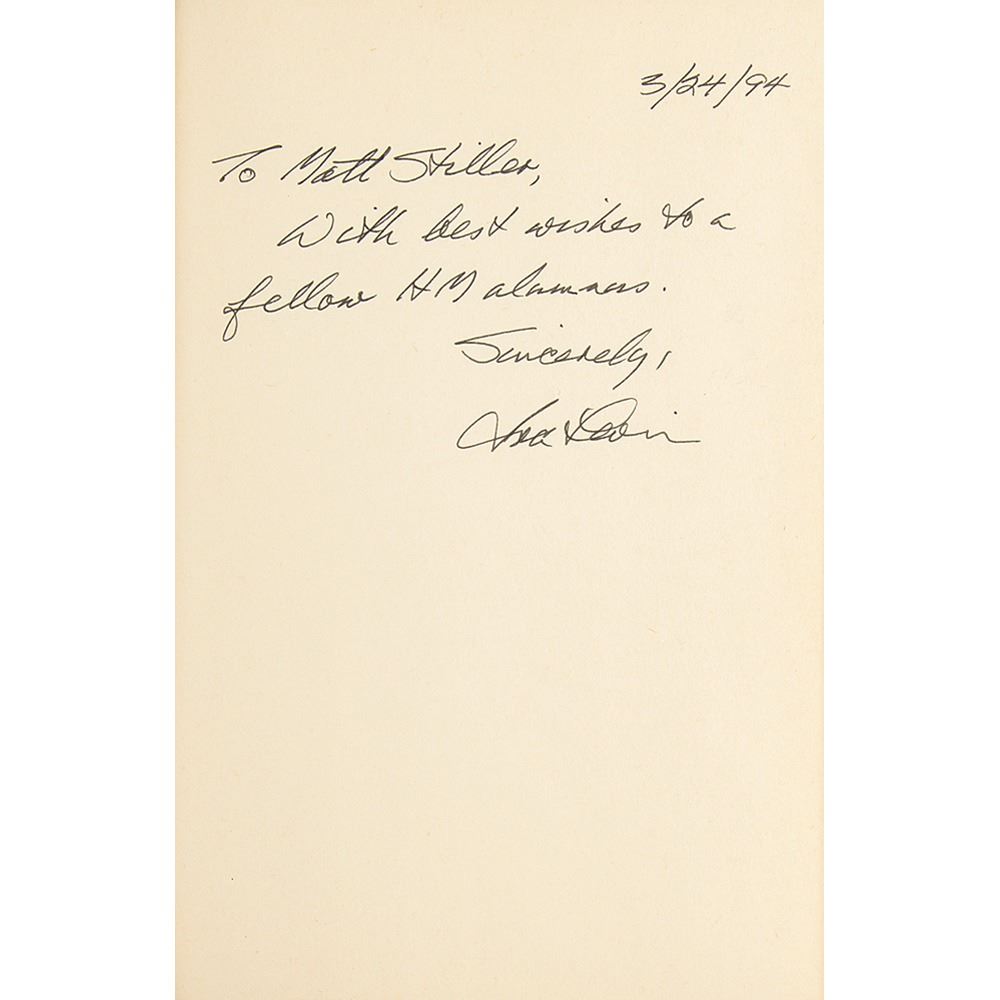 3/24/94
To Matt Stiller,
With best wishes to a
fellow HM alumnus.
Sincerely,
Ira Levin